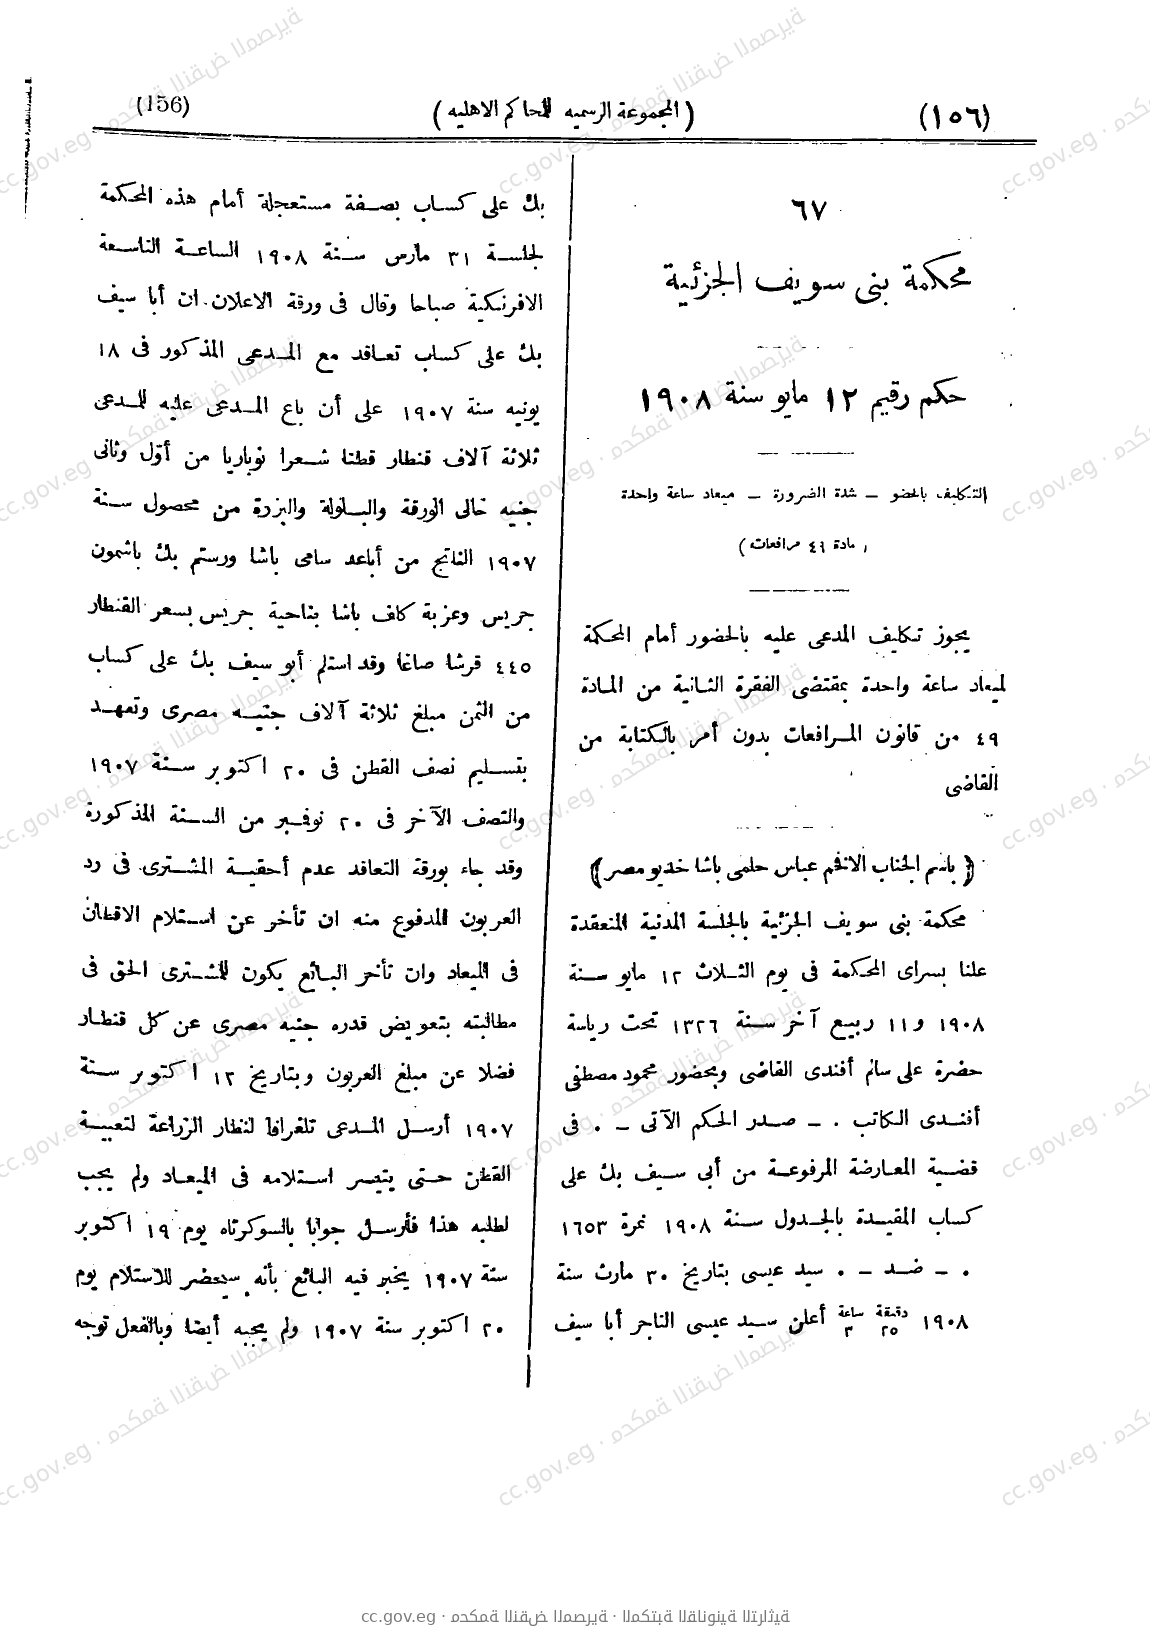 (١٥٦) (المجموعة الرسميه للمحاكم الاهليه) (156)
٦٧
محكمة بنى سويف الجزئية
حكم رقيم ١٢ مايو سنة ١٩٠٨
التكليف بالحضو – شدة الضرورة – ميعاد ساعة واحدة
مادة ٤٩ مرافعات)
يجوز تكليف المدعى عليه بالحضور أمام المحكمة
لميعاد ساعة واحدة بمقتضى الفقرة الثانية من المادة
٤٩ من قانون المرافعات بدون أمر بالكتابة من
القاضى
(باسم الجناب الافخم عباس حلمى باشا خديو مصر)
محكمة بنى سويف الجزئية بالجلسة المدنية المنعقدة
علنا بسراى المحكمة فى يوم الثلاث ١٢ مايو سنة
١٩٠٨ و١١ ربيع آخر سنة ١٣٢٦ تحت رياسة
حضرة على سالم أفندى القاضى وبحضور محمود مصطفى
أفندى الكاتب ٠ – صدر الحكم الآتى – ٠ فى
قضية المعارضة المرفوعة من أبى سيف بك على
كساب المقيدة بالجدول سنة ١٩٠٨ نمرة ١٦٥٣
٠ – ضد – ٠ سيد عيسى بتاريخ ٣٠ مارث سنة
١٩٠٨ دقيقة ٢٥ ساعة ٣ أعلن سيد عيسى التاجر أبا سيف
بك على كساب بصفة مستعجلة أمام هذه المحكمة
لجلسة ٣١ مارس سنة ١٩٠٨ الساعة التاسعة
الافرنكية صباحا وقال فى ورقة الاعلان ان أبا سيف
بك على كساب تعاقد مع المدعى المذكور فى ١٨
يونيه سنة ١٩٠٧ على أن باع المدعى عليه للمدعى
ثلاثة آلاف قنطار قطنا شعرا نوباريا من أوّل وثانى
جنيه خالى الورقة والبلولة والبزرة من محصول سنة
١٩٠٧ الناتج من أباعد سامى باشا ورستم بك باشمون
جريس وعزبة كاف باشا بناحية جريس بسعر القنطار
٤٤٥ قرشا صاغا وقد استلم أبو سيف بك على كساب
من الثمن مبلغ ثلاثة آلاف جنيه مصرى وتعهد
بتسليم نصف القطن فى ٢٠ اكتوبر سنة ١٩٠٧
والنصف الآخر فى ٢٠ نوفمبر من السنة المذكورة
وقد جاء بورقة التعاقد عدم أحقية المشترى فى رد
العربون المدفوع منه ان تأخر عن استلام الاقطان
فى الميعاد وان تأخر البائع يكون للمشترى الحق فى
مطالبته بتعويض قدره جنيه مصرى عن كل قنطار
فضلا عن مبلغ العربون وبتاريخ ١٢ اكتوبر سنة
١٩٠٧ أرسل المدعى تلغرافا لنظار الزراعة لتعبية
القطن حتى يتيسر استلامه فى الميعاد ولم يجب
لطلبه هذا فأرسل جوابا بالسوكرتاه يوم ١٩ اكتوبر
سنة ١٩٠٧ يخبر فيه البائع بأنه سيحضر للاستلام يوم
٢٠ اكتوبر سنة ١٩٠٧ ولم يجبه أيضا وبالفعل توجه
cc.gov.eg · محكمة النقض المصرية · المكتبة القانونية التراثية